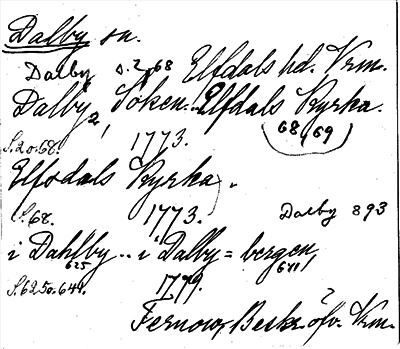 Dalby sn.
Dalby s. 2, 68 Elfdals hd. Vrm.
Dalby, Soken. Elfdals Kyrka.
2, 68, 69
S. 20. 68. 1773.
Elfsdals Kyrka.
S. 68. 1773. Dalby 893
i Dahlby .. i Dalby = bergen,
625 641
S. 625 o. 641. 1779.
Fernow, Beskr. öfv. Vrm.